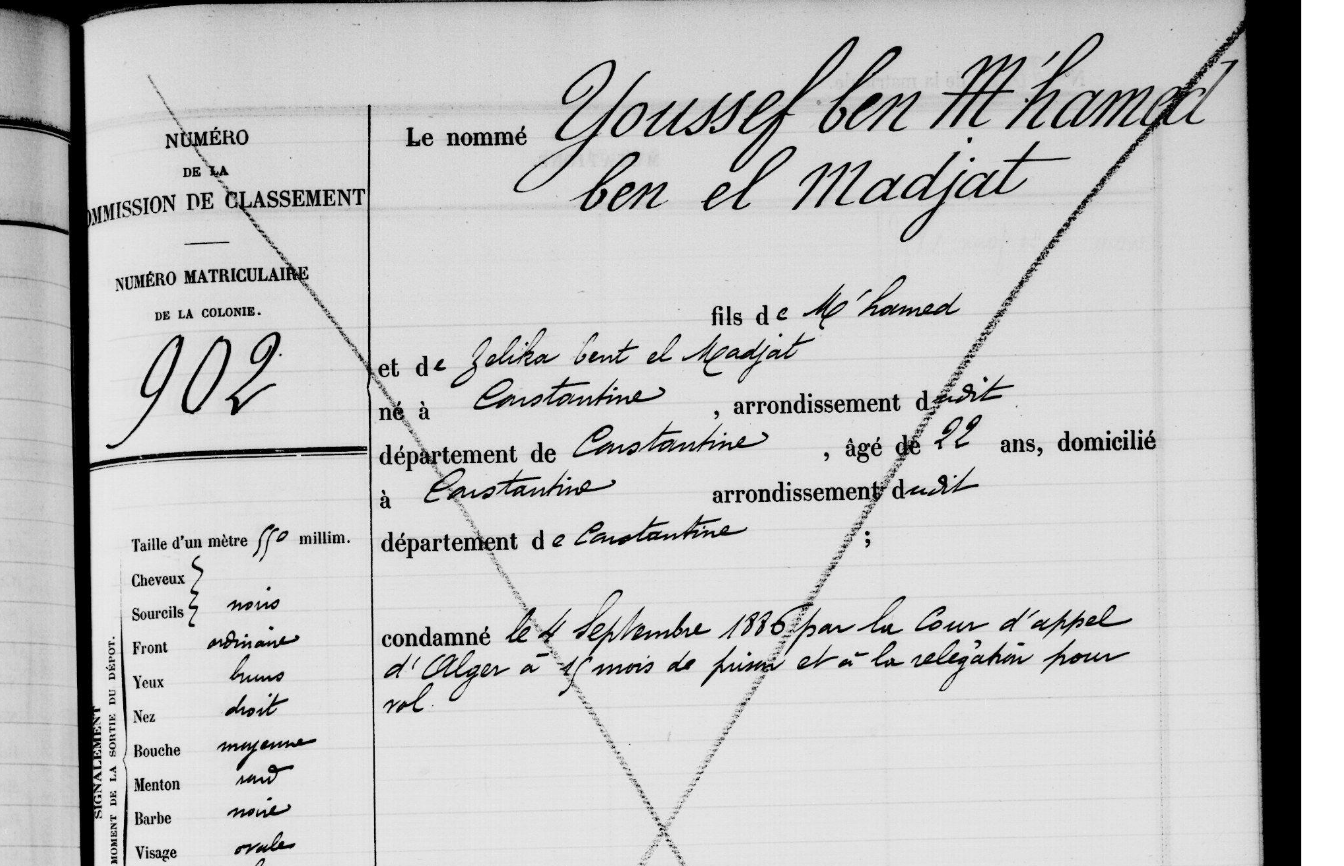 NUMÉRO
DE LA
OMMISSION DE CLASSEMENT
NUMÉRO MATRICULAIRE
DE LA COLONIE.
902
Le nommé Youssef ben M'hamed
ben el Madjat
fils de M'hamed
et de Zelika bent el Madjat
né à Constantine, arrondissement dudit
département de Constantine, âgé de 22 ans, domicilié
à Constantine arrondissement dudit
département de Constantine ;
condamné le 4 Septembre 1886 par la Cour d'appel
d'Alger à mois de prison et à la relégation pour
vol.
SIGNALEMENT
MOMENT DE LA SORTIE DU DÉPOT.
Taille d'un mètre 550 millim.
Cheveux
Sourcils noirs
Front ordinaire
Yeux bruns
Nez droit
Bouche moyenne
Menton rond
Barbe noire
Visage ovale